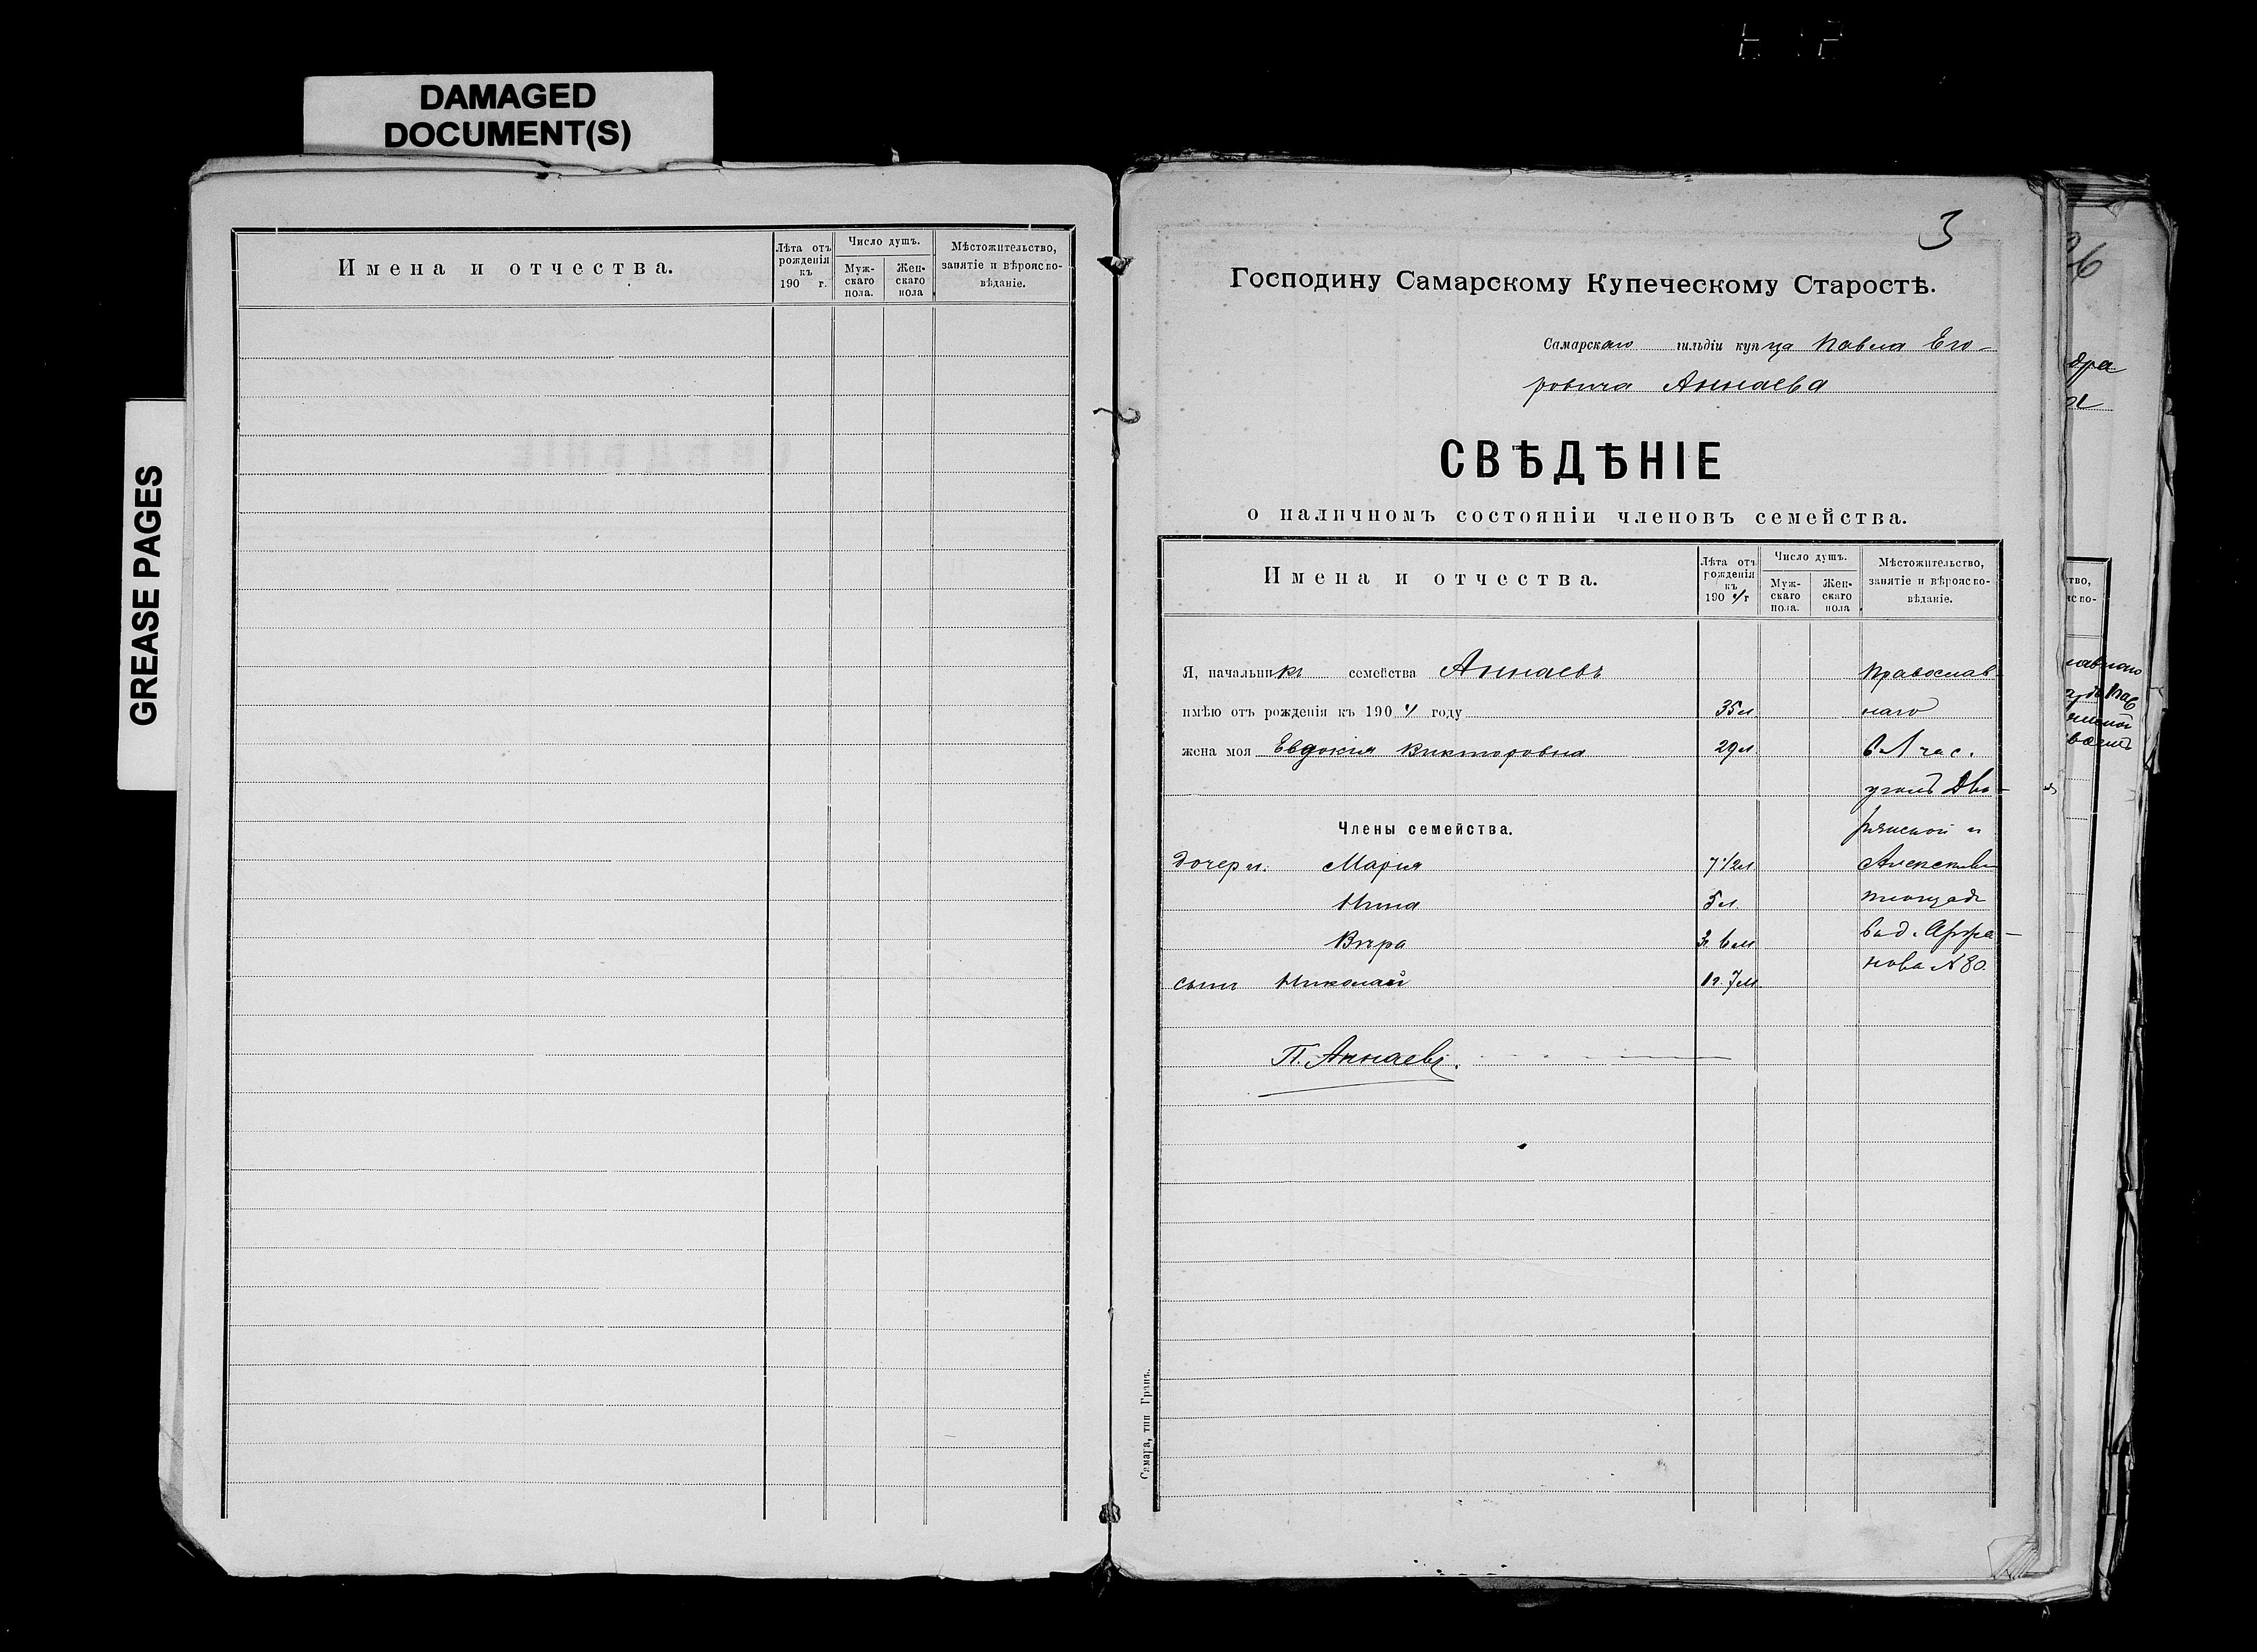 DAMAGED
DOCUMENT(S)
GREASE PAGES
Имена и отчества.
Лѣта отъ
рожденія
къ
190 г.
Число душъ.
Муж-
скаго
пола.
Жен-
скаго
пола
Мѣстожительство,
занятіе и вѣроиспо-
вѣданіе.
3
Господину Самарскому Купеческому Старостѣ.
Самарскаго гильдіи купца Павла Его-
ровича Аннаева
СВѢДѢНІЕ
о наличномъ состояніи членовъ семейства.
Имена и отчества.
Лѣта отъ
рожденія
къ
190 4/г
Число душъ.
Муж-
скаго
пола.
Жен-
скаго
пола
Мѣстожительство,
занятіе и вѣроиспо-
вѣданіе.
Я, начальникъ семейства Аннаевъ Православ
имѣю отъ рожденія къ 1904 году 35 л. наго
жена моя Евдокия Викторовна 29 л. в 1 час.
уголъ Дво-
Члены семейства. рянской и
дочери: Мария 7 1/2 л.
Нина 5 л. площади
Вѣра
сынъ Николай 1 г. 7 м. нова № 80.
П. Аннаевъ.
Самара, тип Гранъ.
26
дра
тво,
испо-